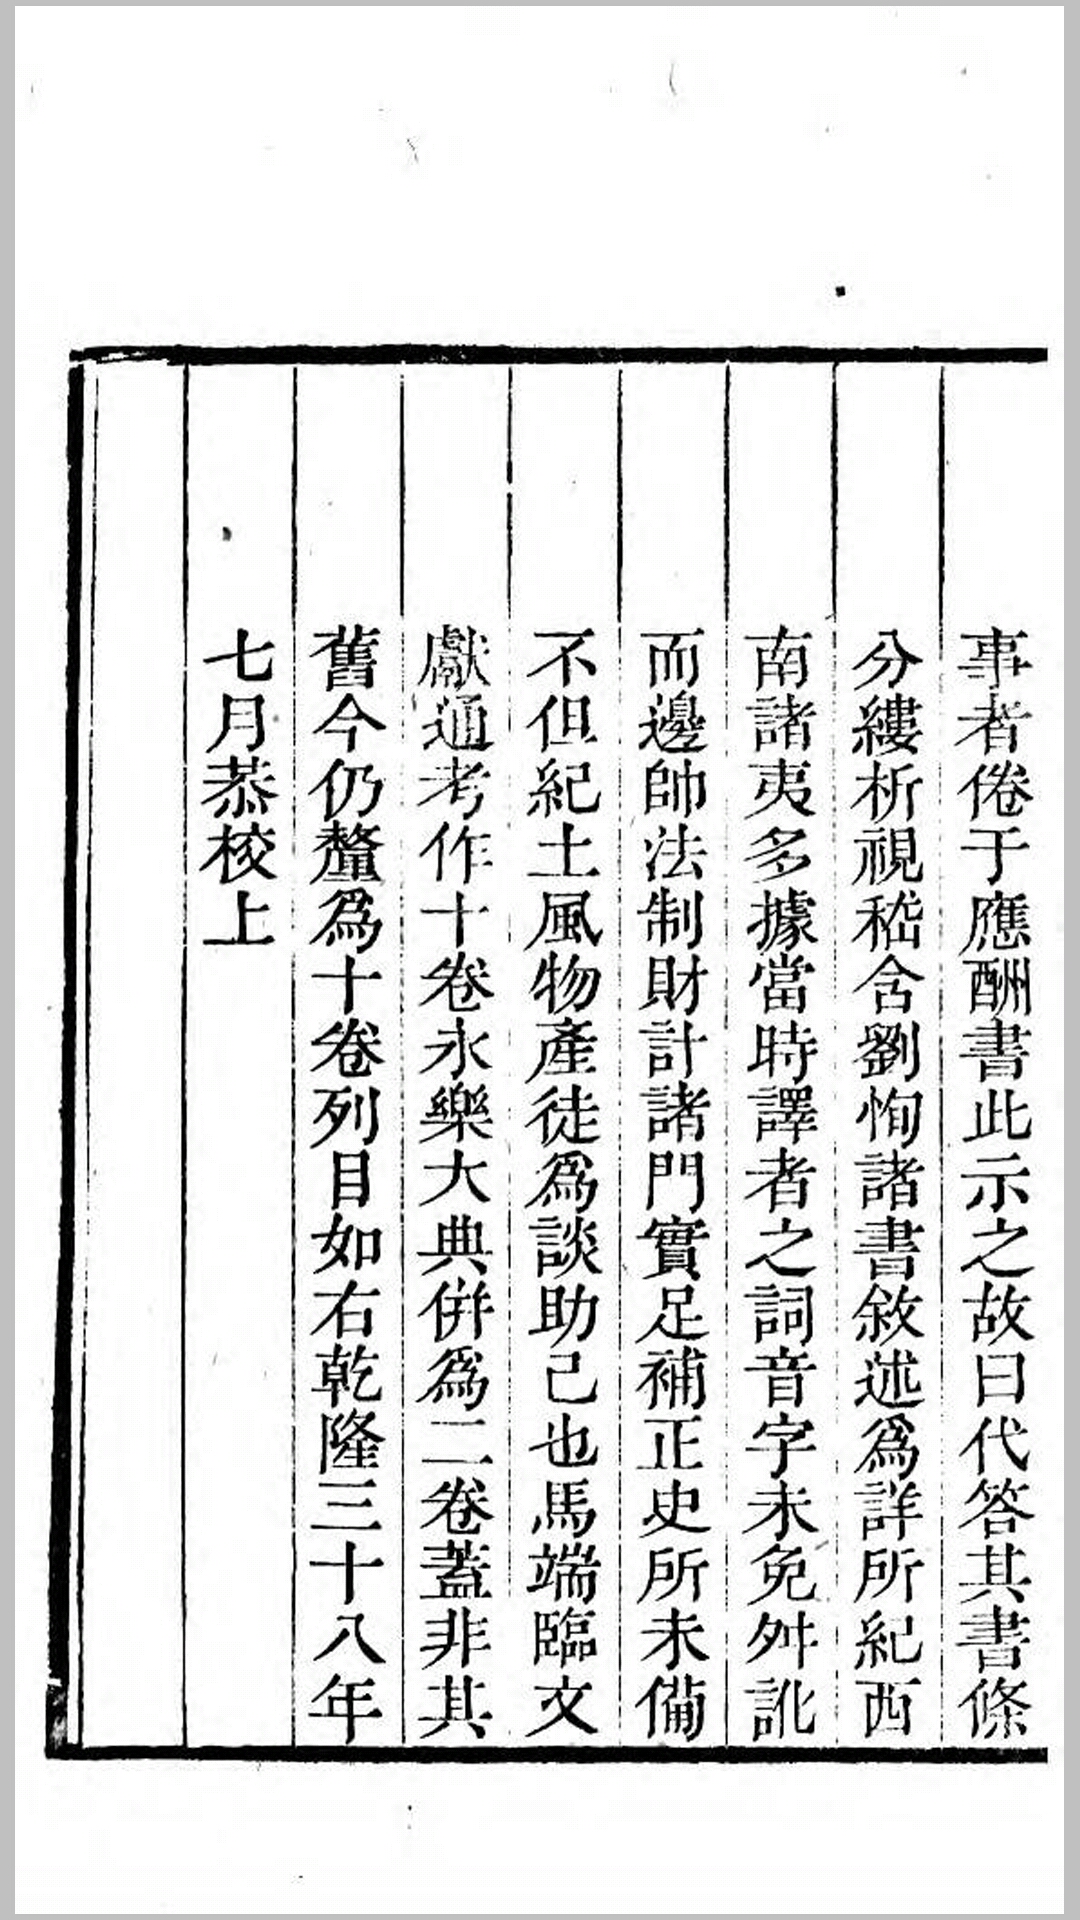 事者倦于應酬書此示之故曰代答其書條
分縷析視嵇含劉恂諸書敘述爲詳所紀西
南諸夷多據當時譯者之詞音字未免舛訛
而邊帥法制財計諸門實足補正史所未備
不但紀土風物產徒爲談助己也馬端臨文
獻通考作十卷永樂大典併爲二卷蓋非其
舊今仍釐爲十卷列目如右乾隆三十八年
七月恭校上